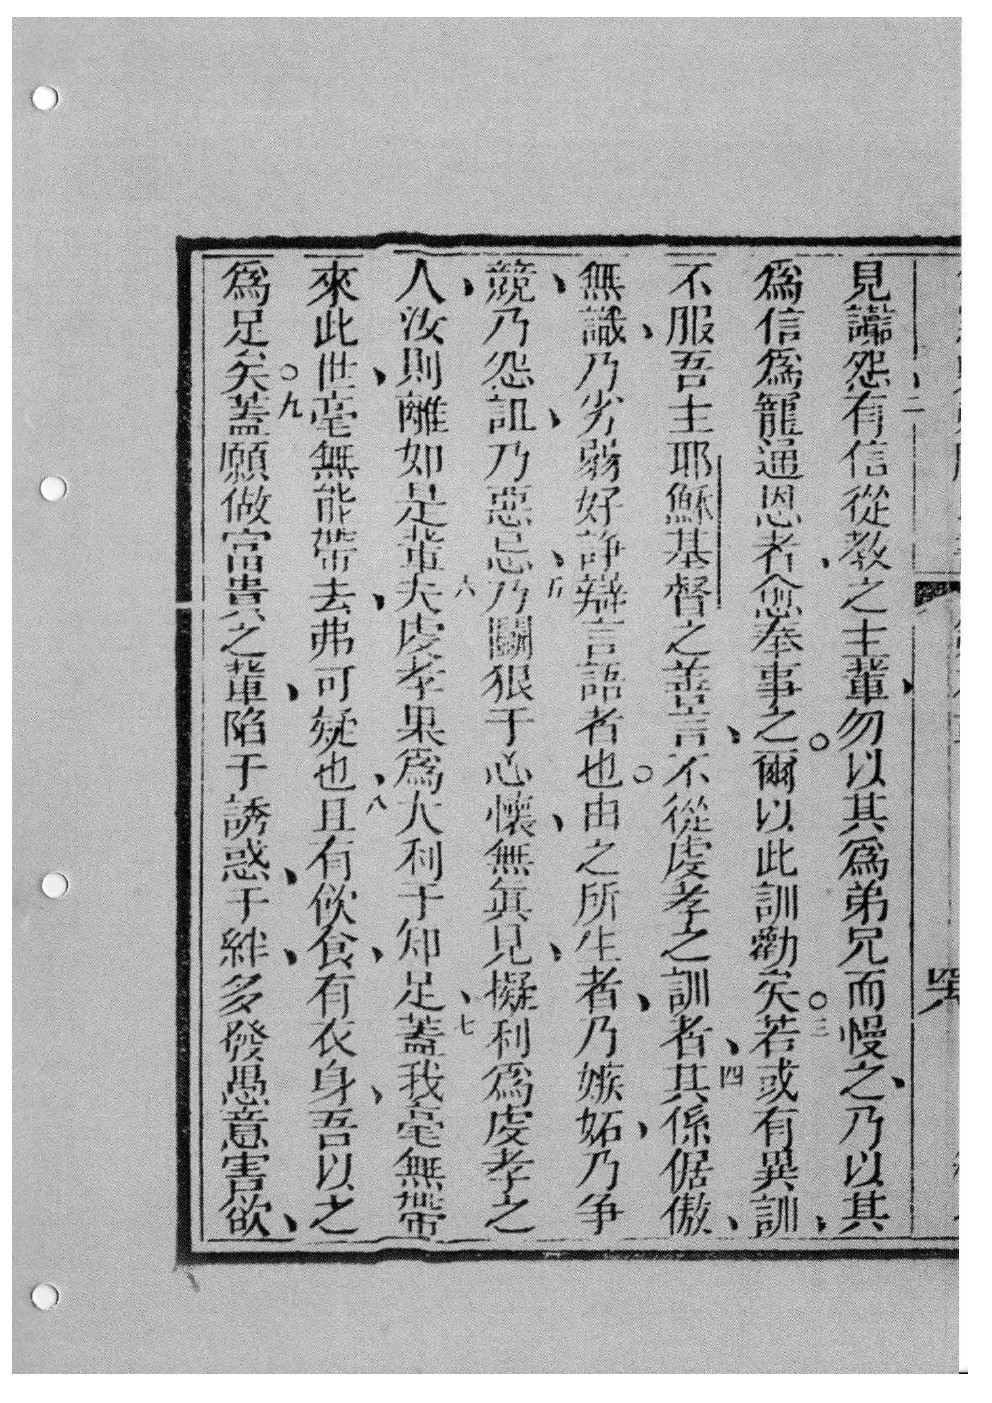 見讟怨、二有信從教之主輩、勿以其爲弟兄而慢之、乃以其
爲信爲寵通恩者、愈奉事之。爾以此訓勸矣。三若或有異訓、
不服吾主耶穌基督之善言、不從虔孝之訓者、四其係倨傲、
無識、乃劣弱好諍辯言語者也。由之所生者、乃嫉妬、乃争
競、乃怨詛、乃惡忌、五乃鬭狠于心懷、無眞見、擬利爲虔孝之
人、汝則離如是輩、六夫虔孝果爲大利于知足、七蓋我毫無帶
來此世、毫無能帶去、弗可疑也、八且有飲食、有衣身、吾以之
爲足矣。九蓋願做富貴之輩、陷于誘惑、于絆、多發愚意害欲、